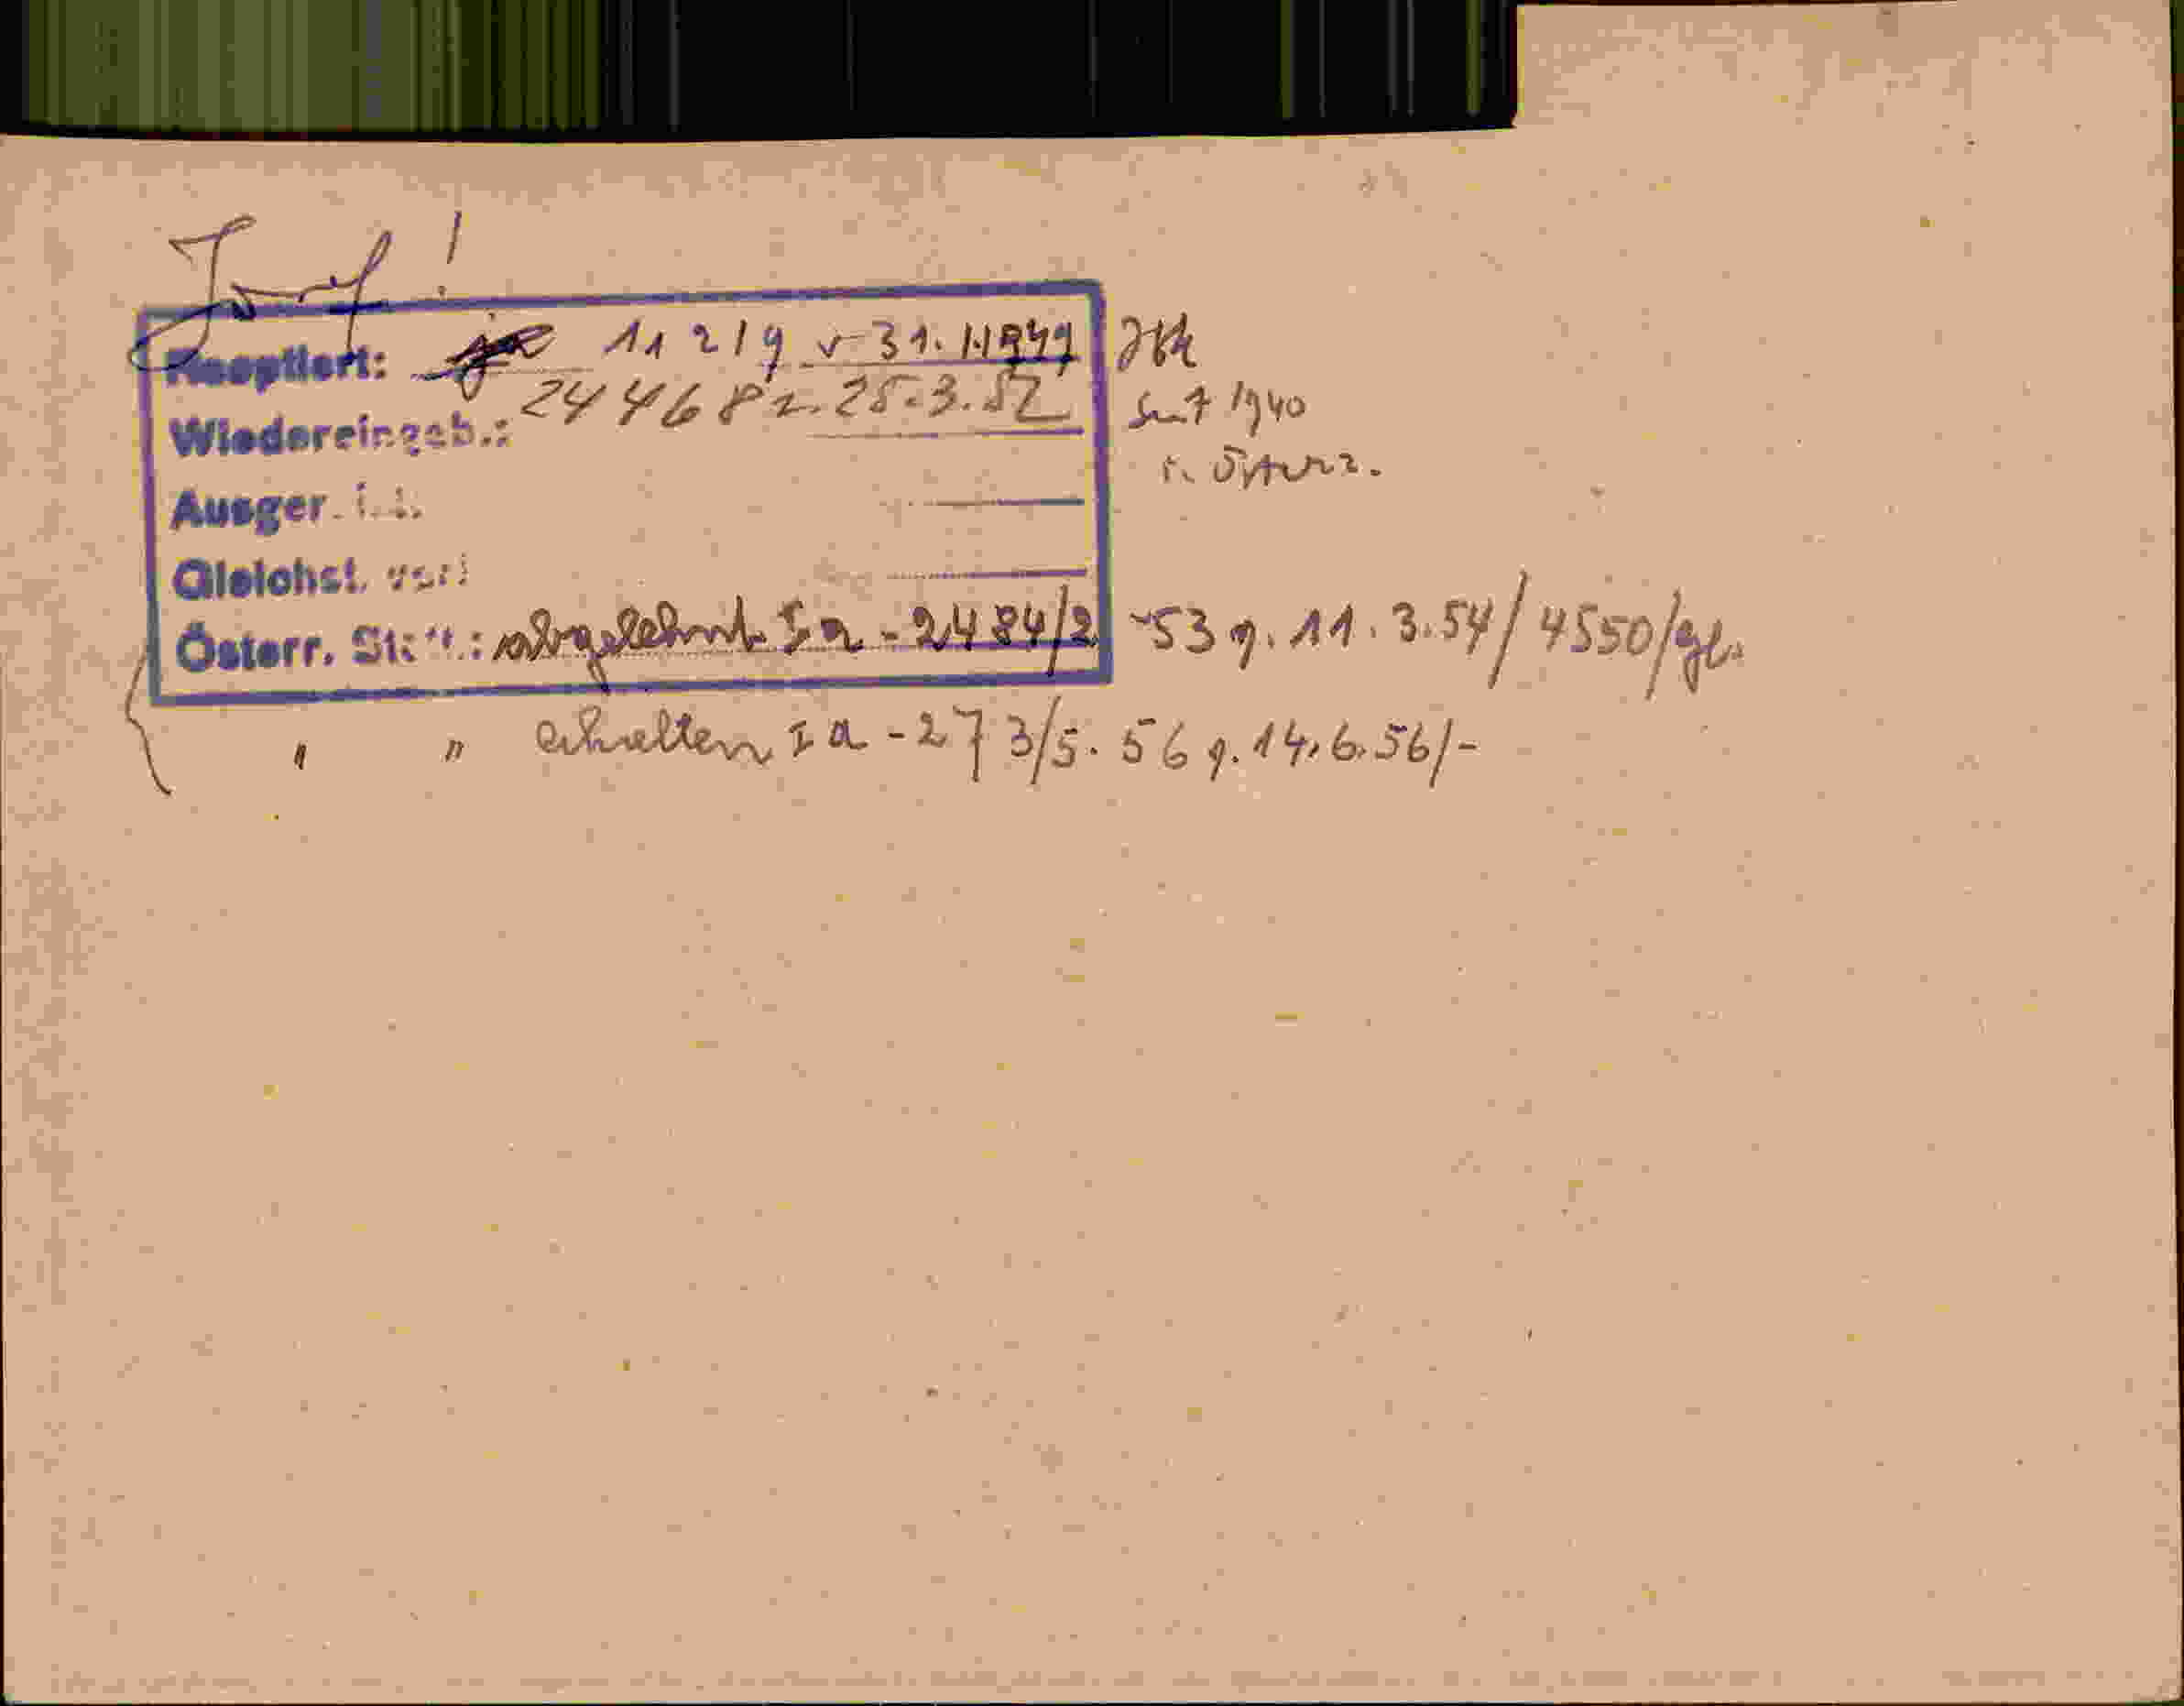 Reoptiert: ja 11219 v 31.1.1949
Wiedereingeb.: 24468 v. 25.3.52 seit 1940
i. Österr.
Ausger. i.L.
Gleichst. von:
Österr. St.: abgelehnt Ia - 2484/2 - 53 g. 11.3.54/4550/gl.
" " erhalten Ia - 273/5. 56 g. 14.6.56/-